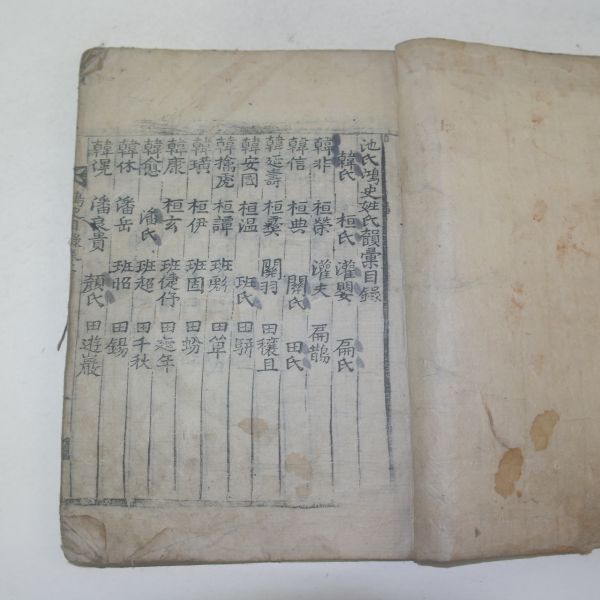 池氏鴻史姓氏韻彙目錄
韓氏 桓氏 灌嬰 扁氏
韓非 桓榮 灌夫 扁鵲
韓信 桓典 關氏 田氏
韓延壽 桓彝 關羽 田穰且
韓安國 桓温 班氏 田駢
韓擒虎 桓譚 班彪 田單
韓璜 桓伊 班固 田蚡
韓康 桓玄 班婕伃 田延年
韓愈 潘氏 班超 田千秋
韓休 潘岳 班昭 田錫
韓滉 潘良貴 顔氏 田遊巖